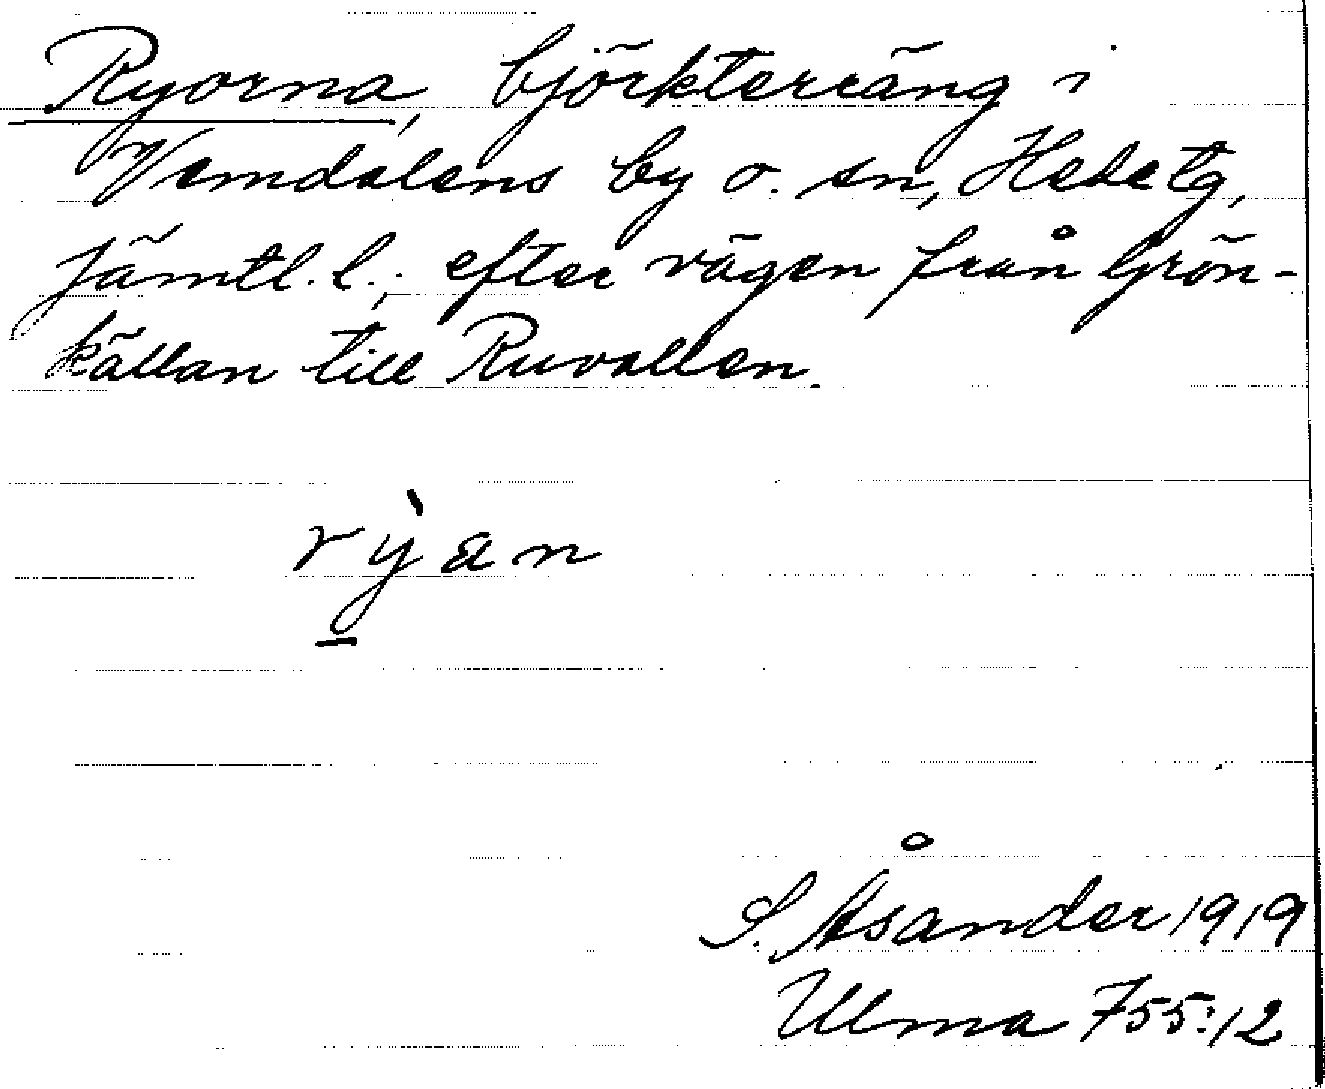 Ryorna, björkterräng i
Vemdalens by o. sn, Hede tg,
Jämtl. l.; efter vägen från Grön-
källan till Ruvallen.
rỳan
S. Åsander 1919
Ulma 755:12